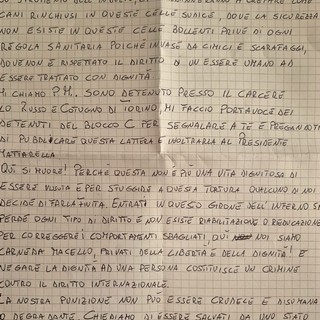 CANI RINCHIUSI IN QUESTE CELLE SUDICE, DOVE LA SICUREZZA
NON ESISTE IN QUESTE CELLE BOLLENTI PRIVE DI OGNI
REGOLA SANITARIA POICHÈ INVASE DA CIMICI E SCARAFAGGI,
DOVE NON È RISPETTATO IL DIRITTO DI UN ESSERE UMANO AD
ESSERE TRATTATO CON DIGNITÀ
MI CHIAMO P.M. SONO DETENUTO PRESSO IL CARCERE
LO RUSSO E COTUGNO DI TORINO, MI FACCIO PORTAVOCE DEI
DETENUTI DEL BLOCCO C PER SEGNALARE A TE E PREGANDOTI
DI PUBBLICARE QUESTA LATTERA E INOLTRARLA AL PRESIDENTE
MATTARELLA
QUI SI MUORE! PERCHÈ QUESTA NON È PIÙ UNA VITA DIGNITOSA DI
ESSERE VISSUTA E PER SFUGGIRE A QUESTA TORTURA QUALCUNO DI NOI
DECIDE DI FARLA FINITA. ENTRATI IN QUESTO GIRONE DELL'INFERNO SI
PERDE OGNI TIPO DI DIRITTO E NON ESISTE RIABILITAZIONE O REDUCAZIONE
PER CORREGGERE I COMPORTAMENTI SBAGLIATI QUI NOI SIAMO
CARNE DA MACELLO, PRIVATI DELLA LIBERTÀ E DELLA DIGNITÀ! E
NEGARE LA DIGNITÀ AD UNA PERSONA COSTITUISCE UN CRIMINE
CONTRO IL DIRITTO INTERNAZIONALE.
LA NOSTRA PUNIZIONE NON PUÒ ESSERE CRUDELE E DISUMANA
O DEGRADANTE. CHIEDIAMO DI ESSERE SALVATI DA UNO STATO